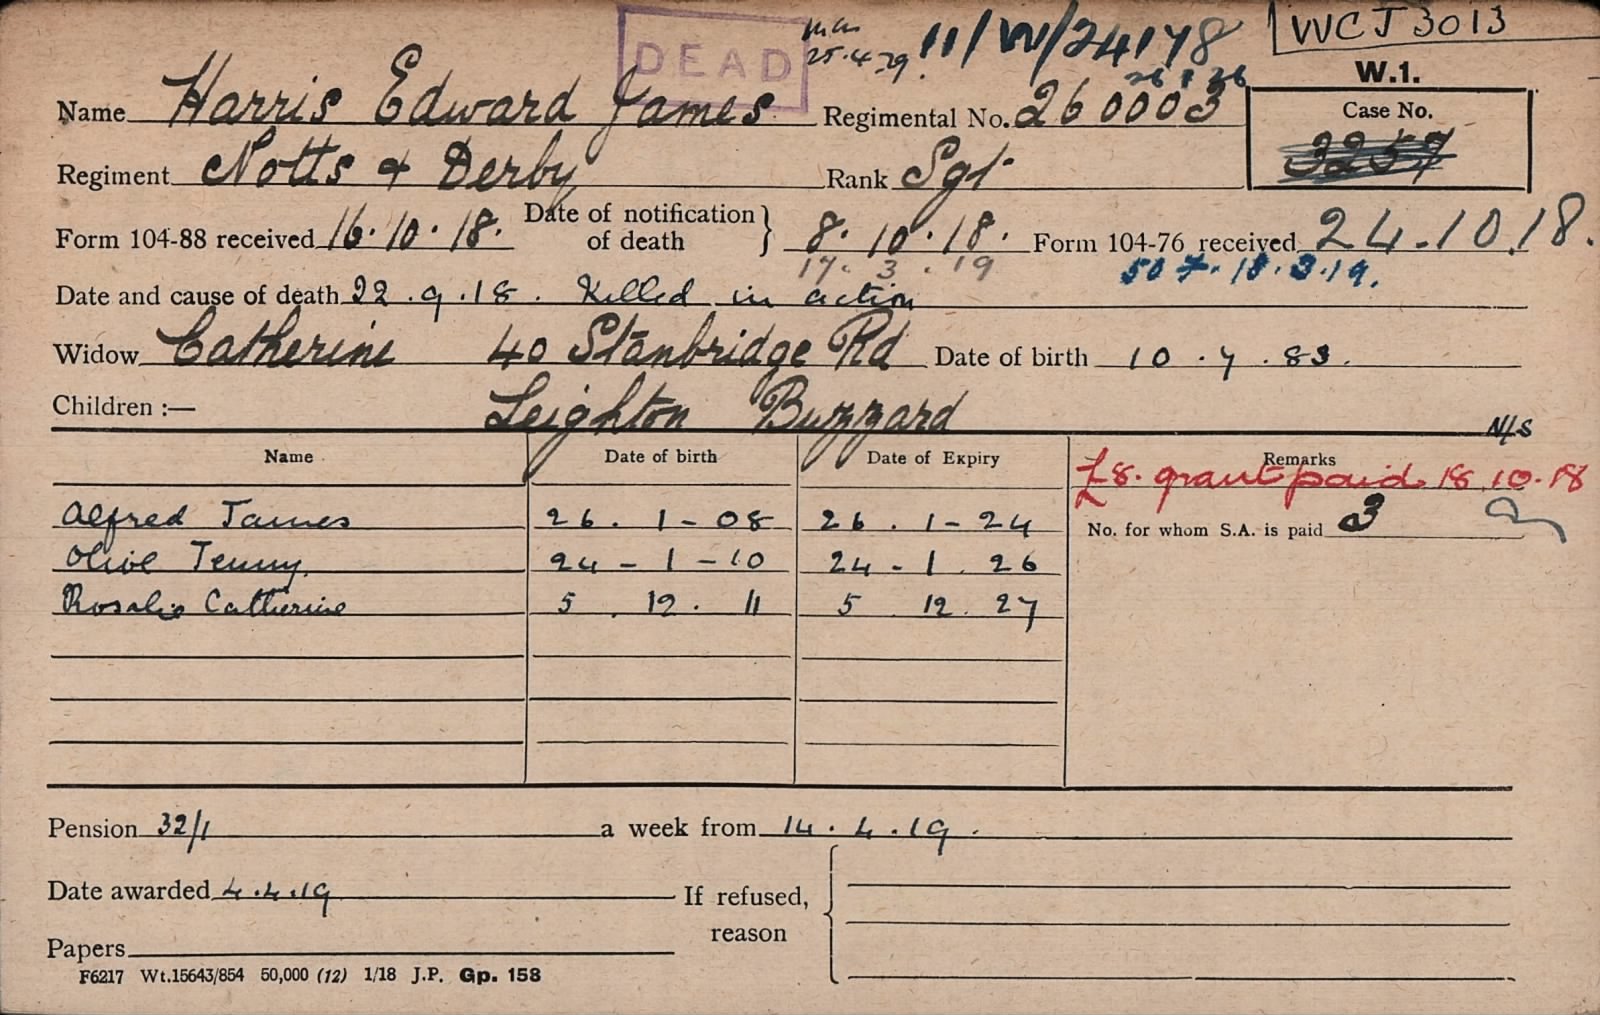 DEAD
25.4.29 11/W/24178 WCJ 3013
26 1 26 W.1.
Name Harris Edward James Regimental No. 260003 Case No.
3257
Regiment Notts & Derby Rank Sgt
Form 104-88 received 16.10.18. Date of notification of death } 8.10.18. Form 104-76 received 24.10.18.
17.3.19 507. 18.3.19.
Date and cause of death 22.9.18. Killed in action
Widow Catherine 40 Stanbridge Rd Date of birth 10.7.83.
Children :— Leighton Buzzard
N/S
Name Date of birth Date of Expiry Remarks
£8. grant paid 18.10.18
Alfred James 26.1-08 26.1-24
No. for whom S.A. is paid 3
Olive Jenny. 24-1-10 24-1.26
Rosalie Catherine 5.12.11 5 12.27
Pension 32/1 a week from 14.4.19.
Date awarded 4.4.19 If refused,
reason
Papers
F6217 Wt.15643/854 50,000 (12) 1/18 J.P. Gp. 158